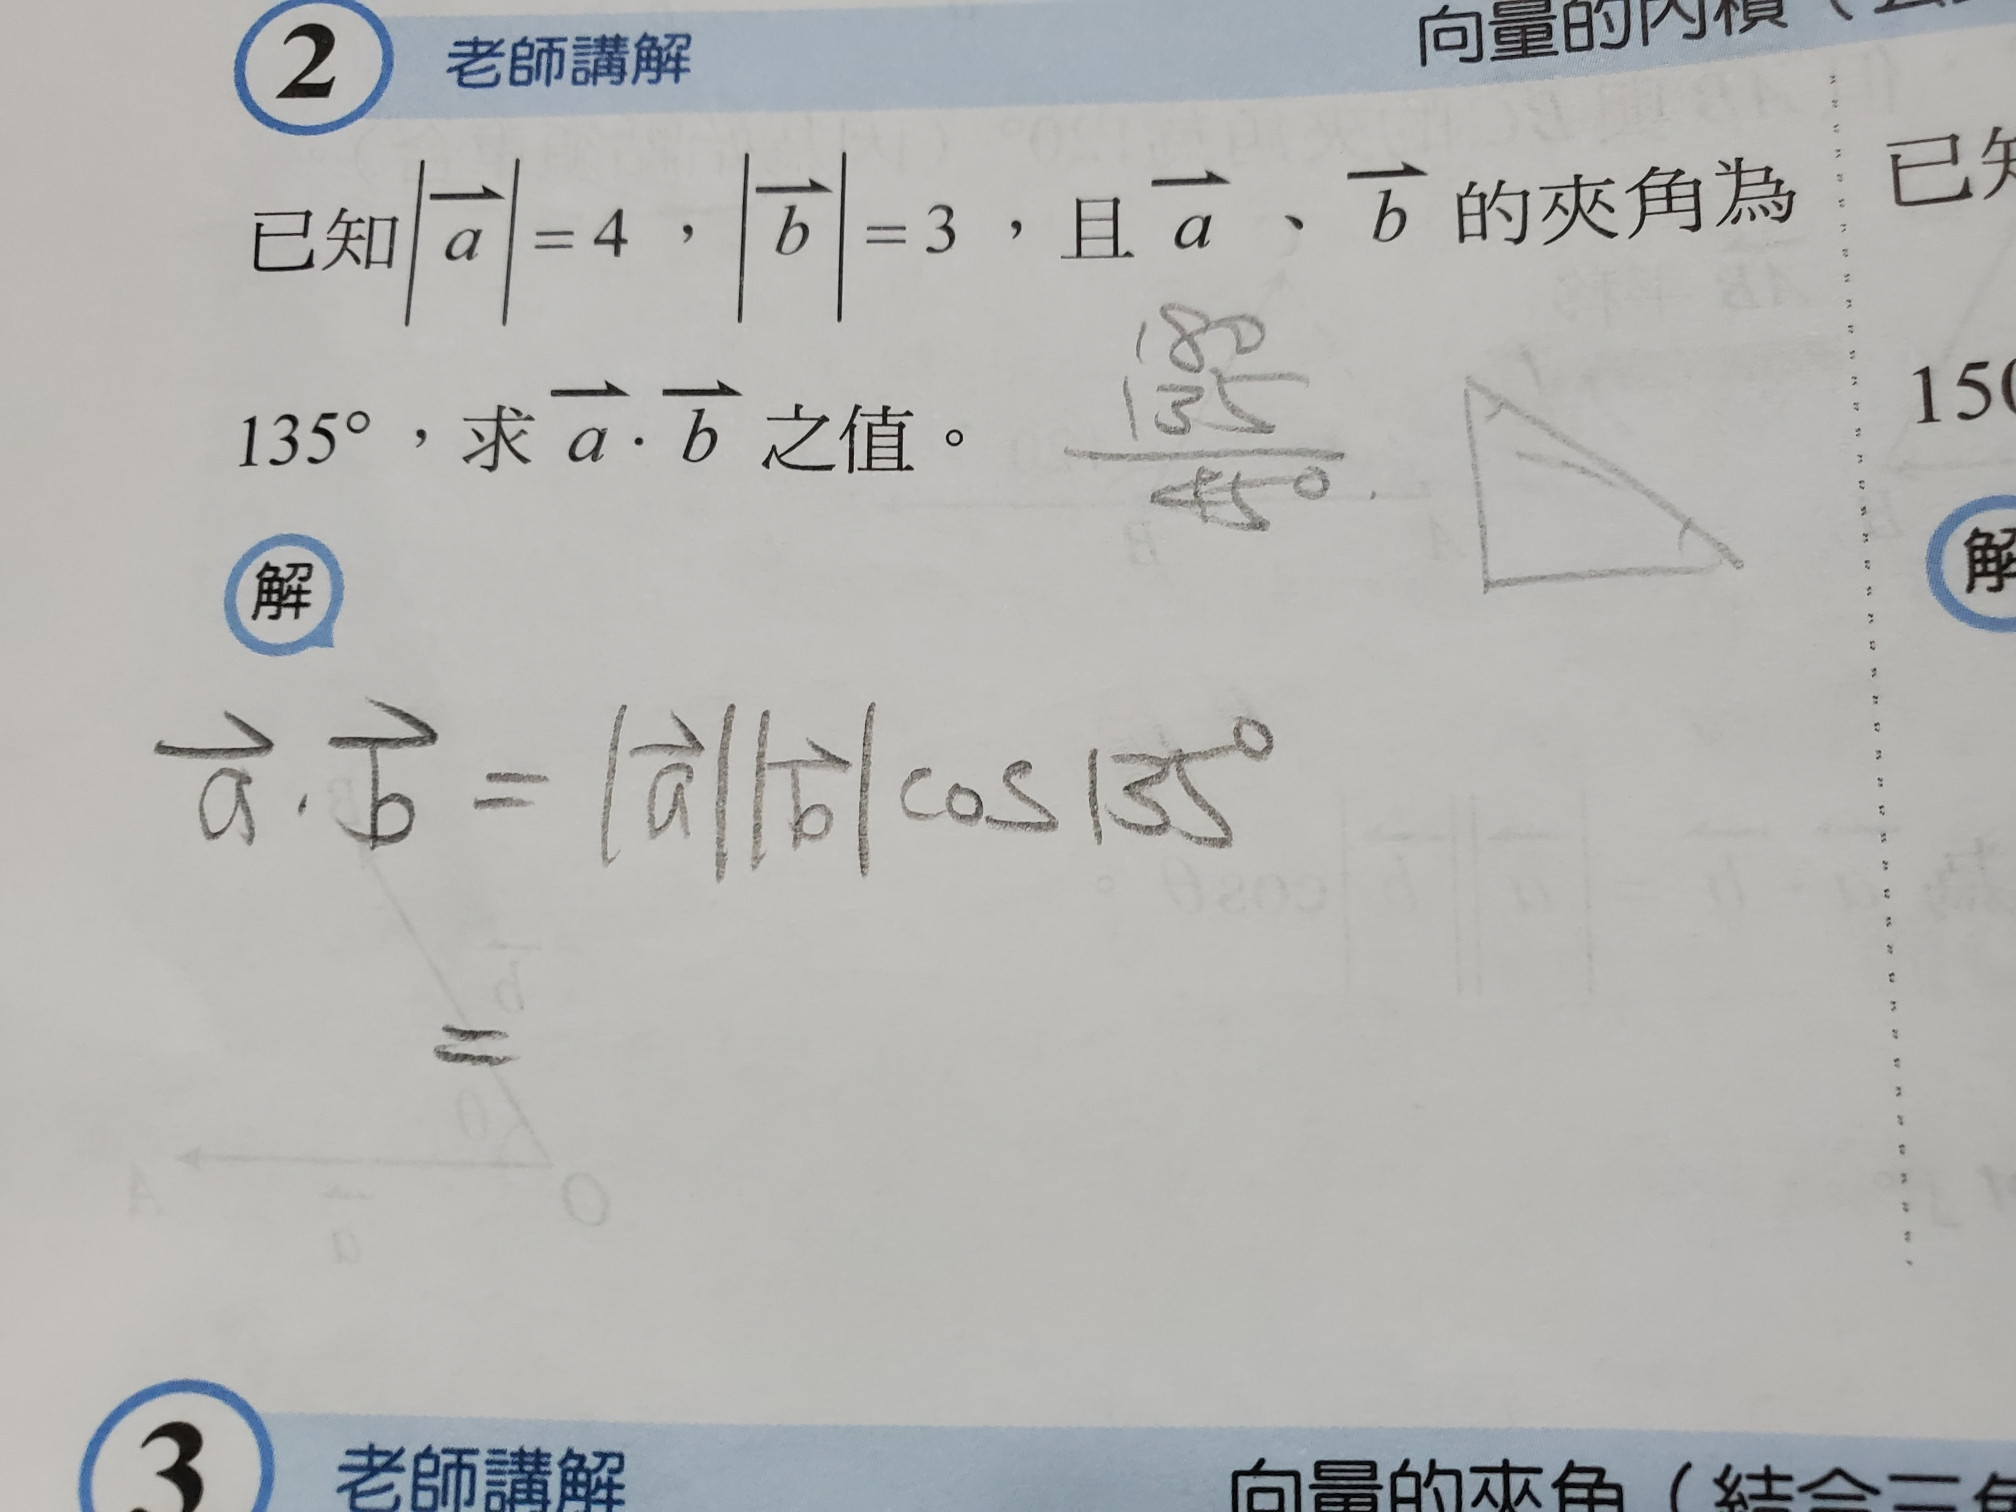 2 老師講解 向量的內積（
已知|a|=4，|b|=3，且 a、b 的夾角為
135°，求 a·b 之值。
180
135
45°
解
a·b = |a||b| cos135°
=
已知
150
解
3 老師講解 向量的夾角（結合三角